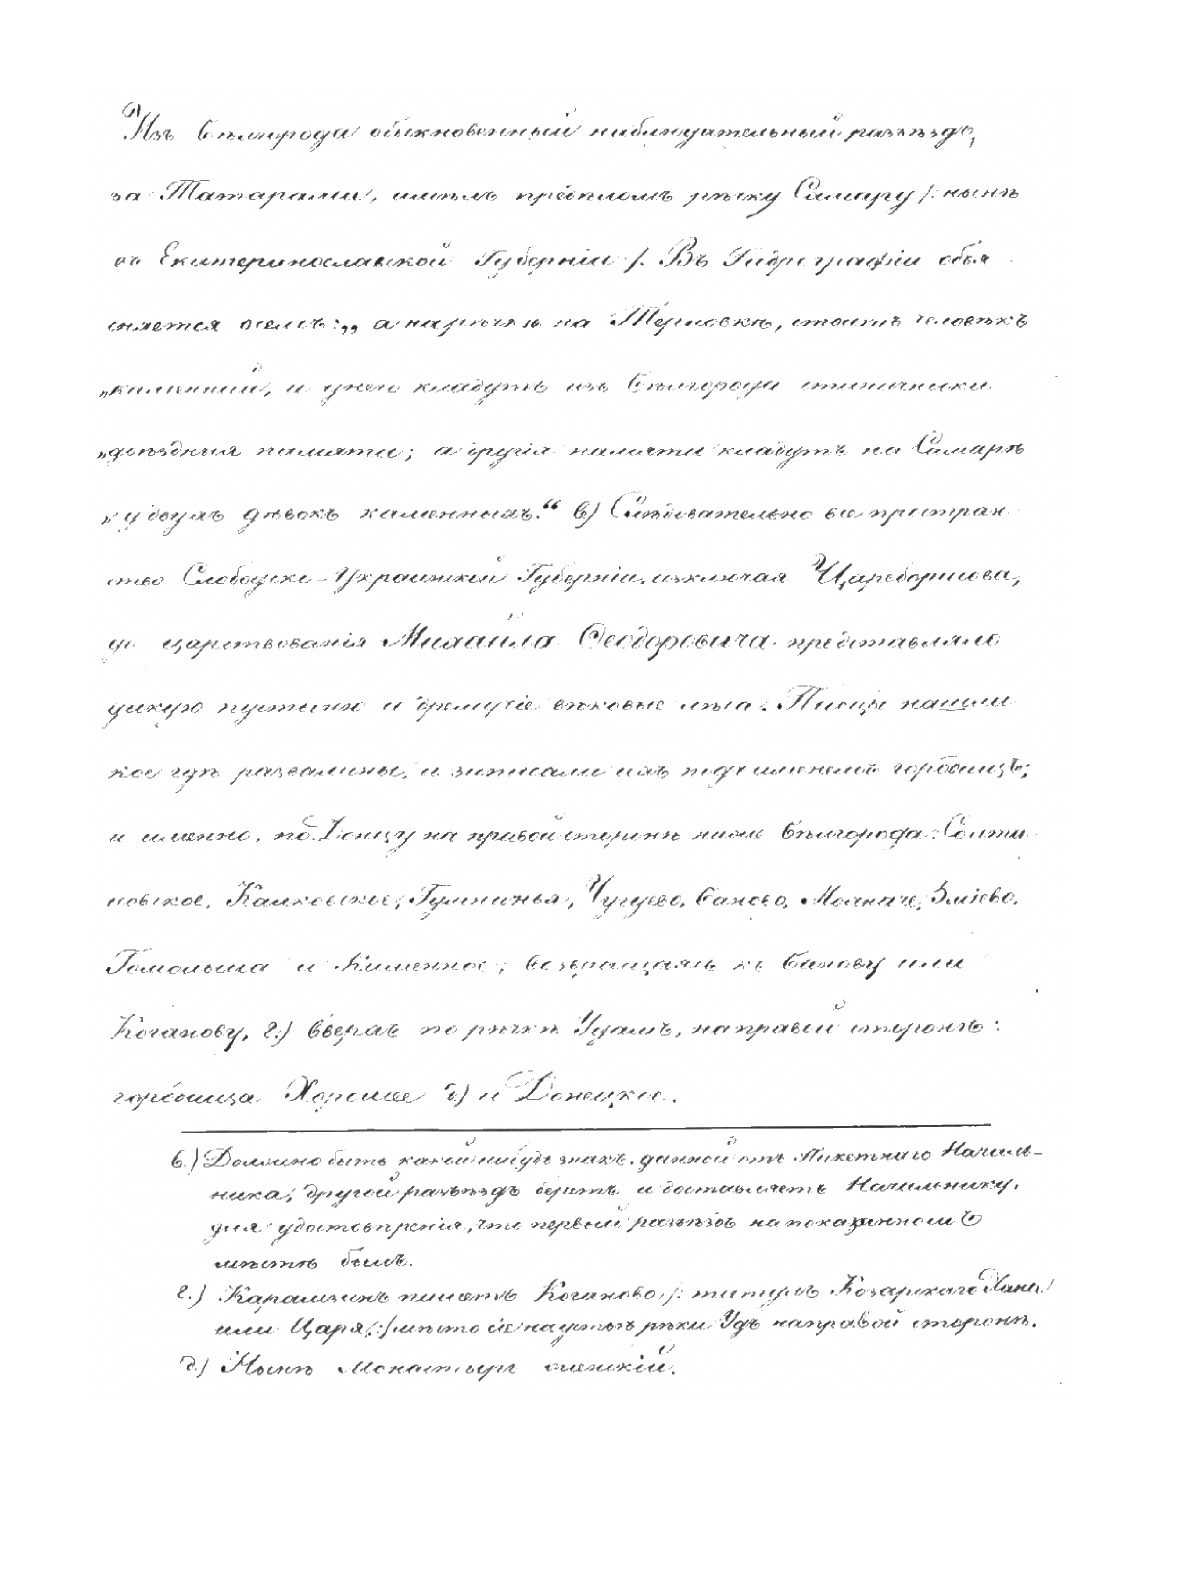 Изъ Бѣлгорода обыкновенный наблюдательный разъѣздъ,
за Татарами, имѣлъ предѣломъ рѣчку Самару /: нынѣ
въ Екатеринославской Губерніи /. Въ Гидрографіи объя
сняется о семъ: „ а на рѣчкѣ на Терновкѣ, стоитъ человѣкъ
„каменный, и у него кладутъ изъ Бѣлгорода станичники
„доѣздныя памяти; а другія памяти кладутъ на Самарѣ
„у двухъ дѣвокъ каменныхъ.“ в) Слѣдовательно все простран
ство Слободско-Украинской Губерніи, изключая Цареборисова,
до царствованія Михаила Ѳеодоровича представляло
дикую пустыню и дремучіе вѣковые лѣса. Писцы нашли
кое гдѣ развалины, и записали ихъ подъ именемъ городищъ;
и именно, по Донцу на правой сторонѣ ниже Бѣлгорода: Салты
новское, Каиковское, Гумнинья, Чугуево, Баново, Мохначе, Зміево,
Гомольша и Каменное; возвращаясь къ Банову или
Коганову, г.) вверхъ по рѣчкѣ Удамъ, на правой сторонѣ:
городища Хорошее д) и Донецкое.
в.) Должно быть какой нибудь знакъ, данной отъ Пикетнаго Началь-
ника; другой разъѣздъ беретъ и доставляетъ Начальнику,
для удостовѣренія, что первый разъѣздъ на показанномъ
мѣстѣ былъ.
г.) Карамзинъ пишетъ Коганово, /: титулъ Козарскаго Хана
или Царя, :/ мѣсто се на устьѣ рѣки Удъ на правой сторонѣ.
д.) Нынѣ Монастырь онежскій.